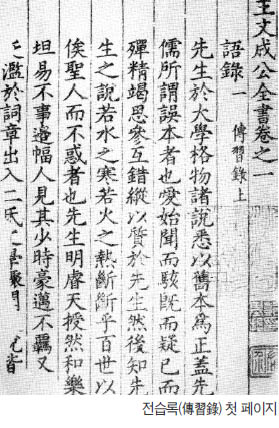 王文成公全書卷之一
語錄一 傳習錄上
先生於大學格物諸說悉以舊本爲正蓋先
儒所謂誤本者也愛始聞而駭旣而疑已而
殫精竭思參互錯縱以質於先生然後知先
生之說若水之寒若火之熱斷斷乎百世以
俟聖人而不惑者也先生明睿天授然和樂
坦易不事邊幅人見其少時豪邁不羈又
之濫於詞章出入二氏
전습록(傳習錄) 첫 페이지